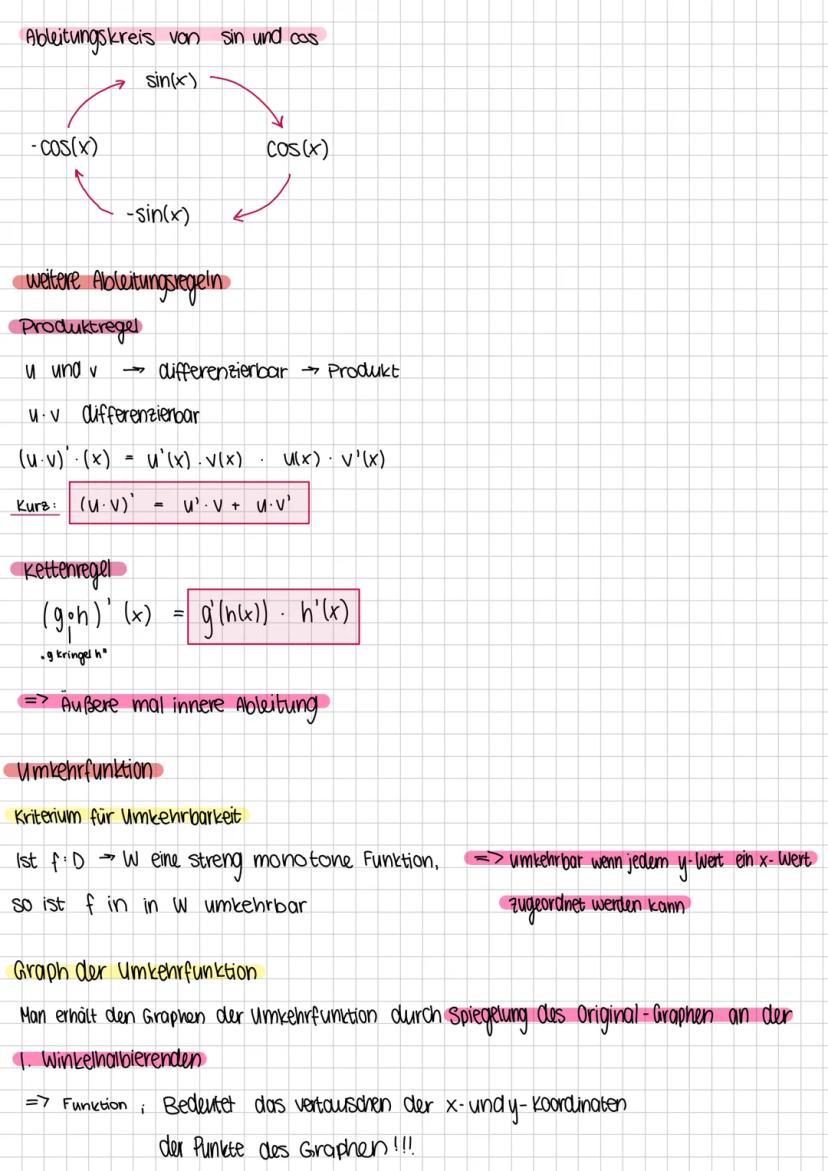 Ableitungskreis von sin und cos
sin(x)
-cos(x) cos(x)
-sin(x)
weitere Ableitungsregeln
Produktregel
u und v → differenzierbar → Produkt
u·v differenzierbar
(u·v)'·(x) = u'(x)·v(x) · u(x)·v'(x)
Kurz: (u·v)' = u'·v + u·v'
Kettenregel
(g∘h)'(x) = g'(h(x)) · h'(x)
"g kringel h"
=> Äußere mal innere Ableitung
Umkehrfunktion
Kriterium für Umkehrbarkeit
Ist f:D → W eine streng monotone Funktion, => umkehrbar wenn jedem y-Wert ein x-Wert
so ist f in in W umkehrbar zugeordnet werden kann
Graph der Umkehrfunktion
Man erhält den Graphen der Umkehrfunktion durch Spiegelung des Original-Graphen an der
1. Winkelhalbierenden
=> Funktion ; Bedeutet das vertauschen der x-und y-Koordinaten
der Punkte des Graphen!!!